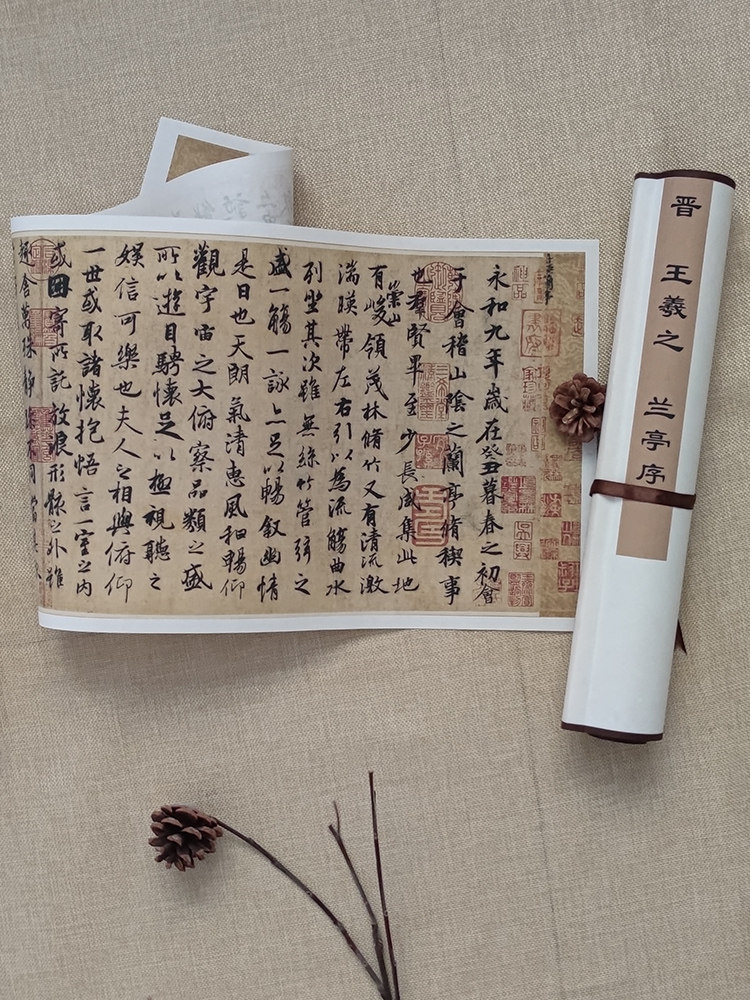 晋 王羲之 兰亭序
永和九年歲在癸丑暮春之初會
于會稽山陰之蘭亭脩禊事
也羣賢畢至少長咸集此地
有崇山峻領茂林脩竹又有清流激
湍暎帶左右引以為流觴曲水
列坐其次雖無絲竹管弦之
盛一觴一詠亦足以暢敘幽情
是日也天朗氣清惠風和暢仰
觀宇宙之大俯察品類之盛
所以遊目騁懷足以極視聽之
娛信可樂也夫人之相與俯仰
一世或取諸懷抱悟言一室之內
或因寄所託放浪形骸之外雖
趣舍萬殊靜躁不同